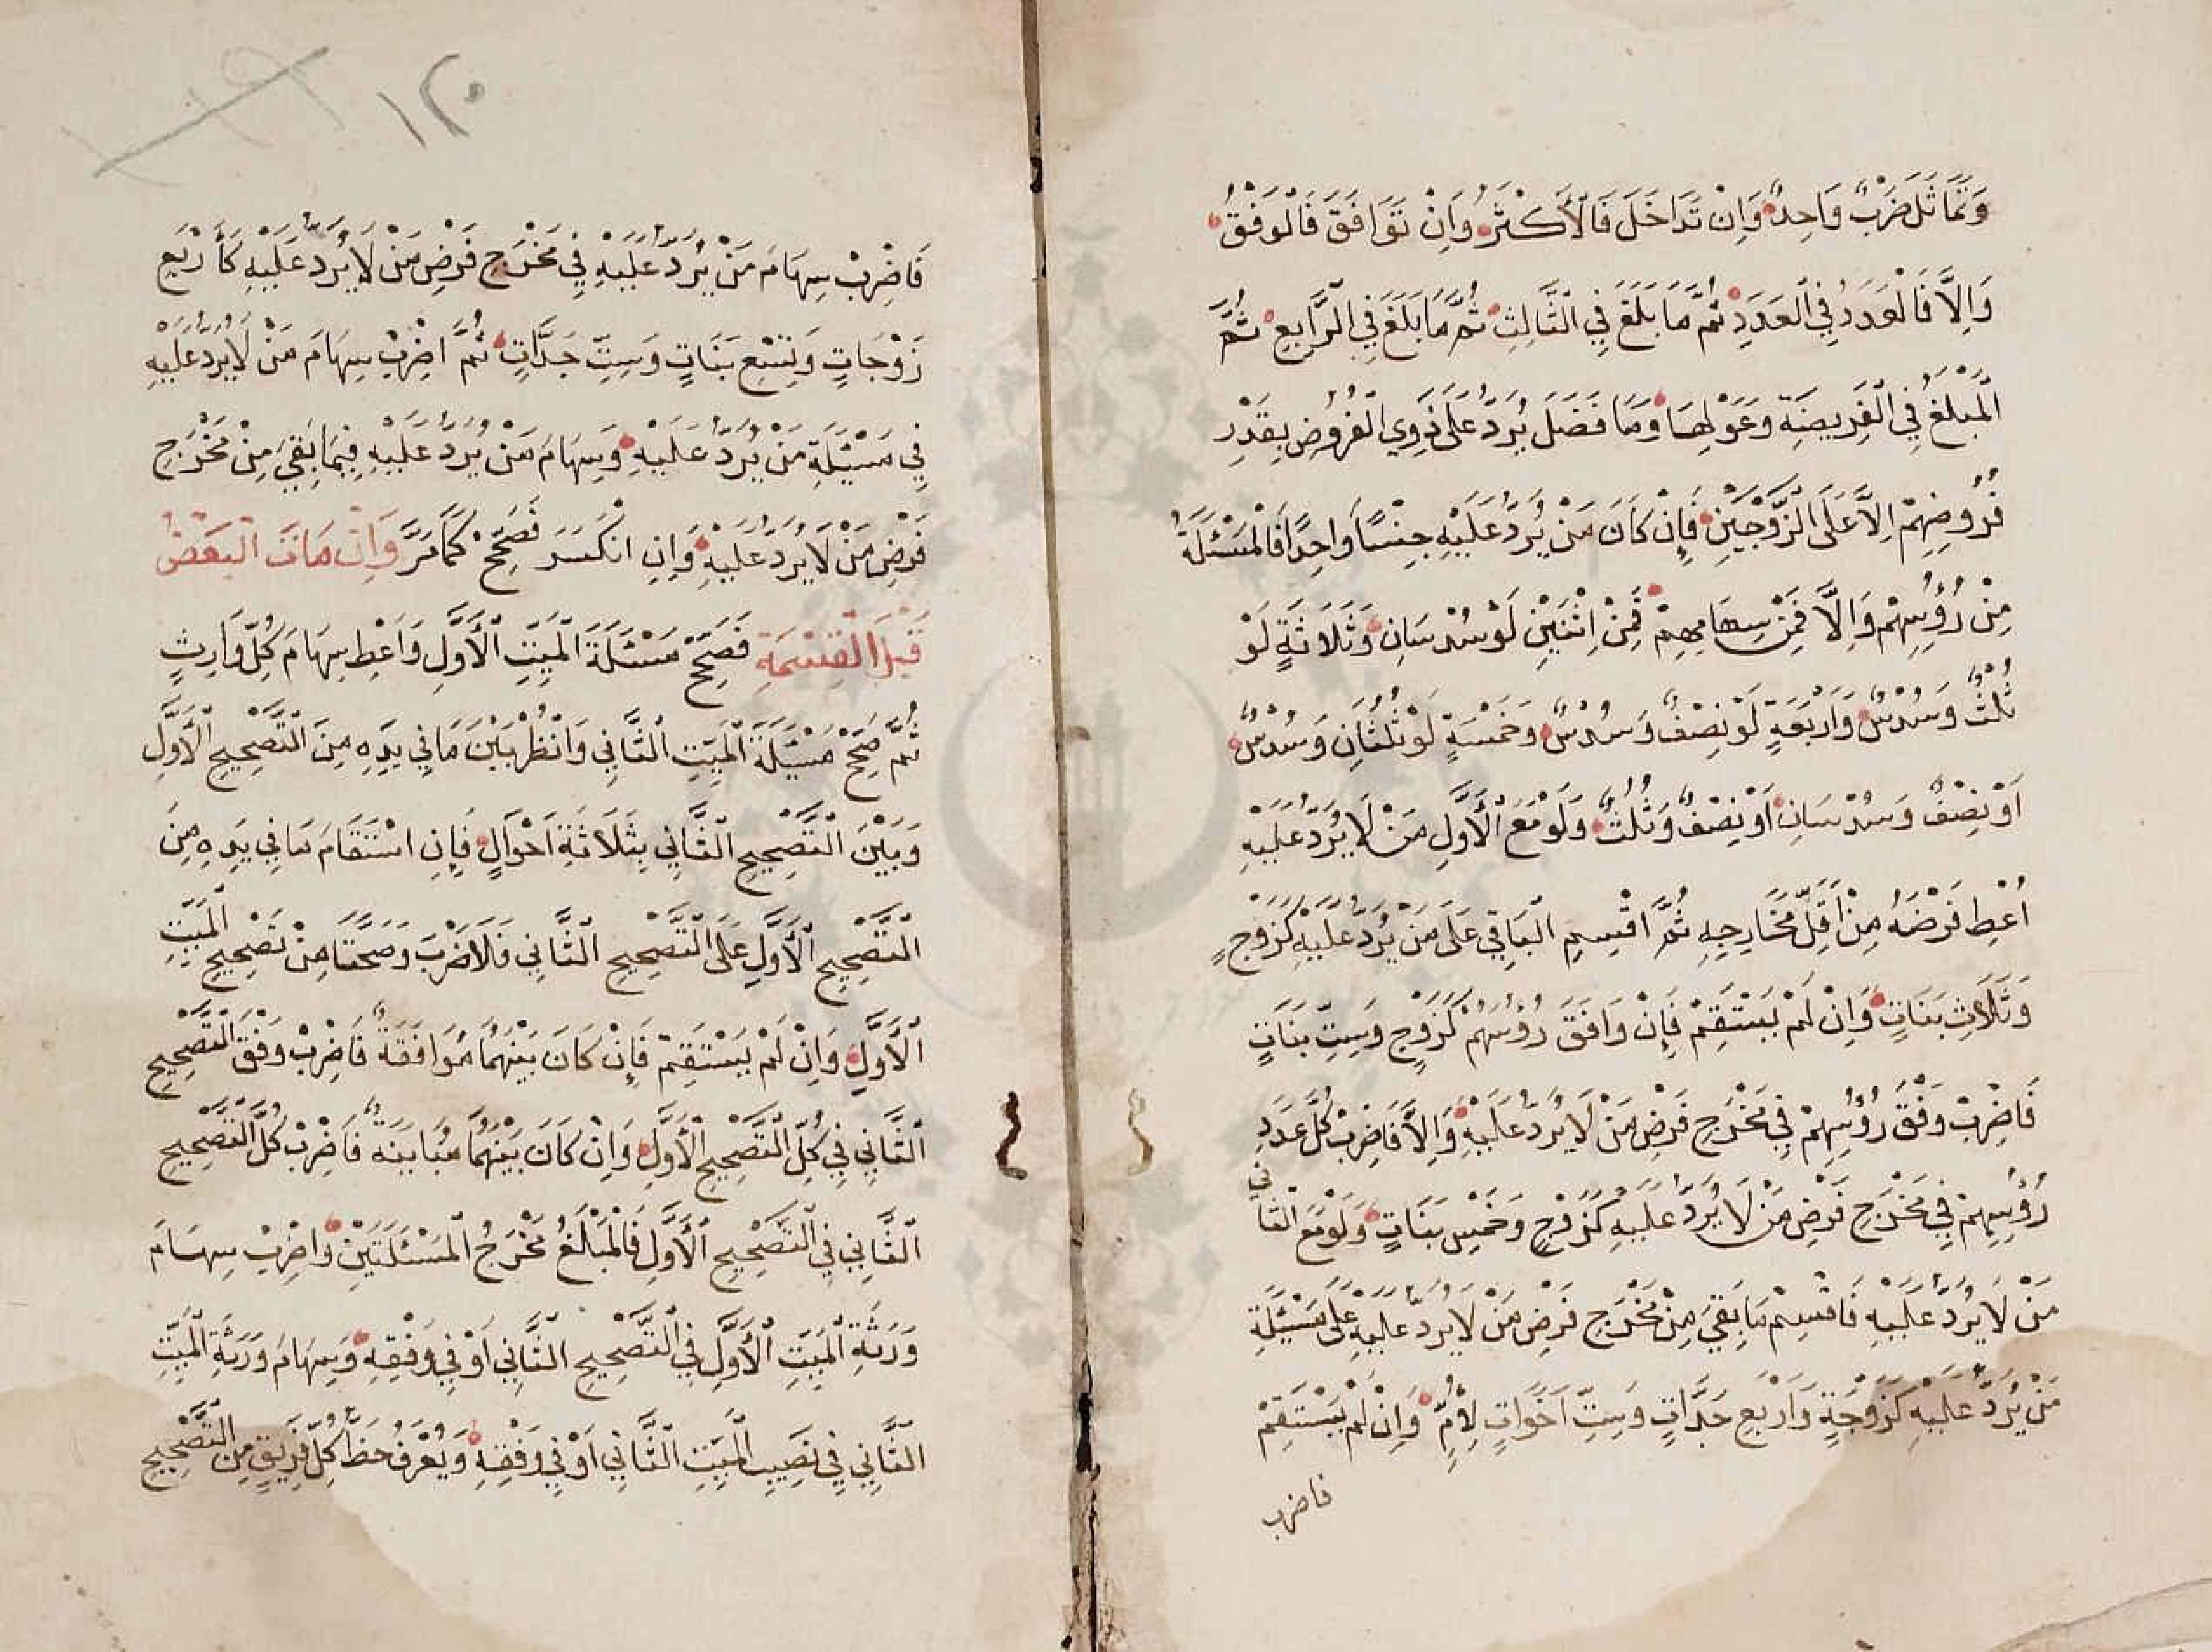 وَتَمَاثَلَ ضَرْبٌ وَاحِدٌ وَاِنْ تَدَاخَلَ فَالْاَكْثَرُ وَاِنْ تَوَافَقَ فَالْوَفْقُ
وَاِلَّا فَالْعَدَدُ فِي الْعَدَدِ ثُمَّ مَا بَلَغَ فِي الثَّالِثِ ثُمَّ مَا بَلَغَ فِي الرَّابِعِ ثُمَّ
الْمَبْلَغُ فِي الْفَرِيضَةِ وَعَوْلِهَا وَمَا فَضَلَ يُرَدُّ عَلَى ذَوِي الْفُرُوضِ بِقَدْرِ
فُرُوضِهِمْ اِلَّا عَلَى الزَّوْجَيْنِ فَاِنْ كَانَ مَنْ يُرَدُّ عَلَيْهِ جِنْسًا وَاحِدًا فَالْمَسْئَلَةُ
مِنْ رُؤُسِهِمْ وَاِلَّا فَمِنْ سِهَامِهِمْ فَمِنْ اثْنَيْنِ لَوْ سُدْسَانِ وَثَلَاثَةٍ لَوْ
ثُلُثٌ وَسُدْسٌ وَاَرْبَعَةٍ لَوْ نِصْفٌ وَسُدْسٌ وَخَمْسَةٍ لَوْ ثُلُثَانِ وَسُدْسٌ
اَوْ نِصْفٌ وَسُدْسَانِ اَوْ نِصْفٌ وَثُلُثٌ وَلَوْ مَعَ الْاَوَّلِ مَنْ لَا يُرَدُّ عَلَيْهِ
اُعْطِ فَرْضَهُ مِنْ اَقَلِّ مَخَارِجِهِ ثُمَّ اقْسِمِ الْبَاقِي عَلَى مَنْ يُرَدُّ عَلَيْهِ كَزَوْجٍ
وَثَلَاثِ بَنَاتٍ وَاِنْ لَمْ يَسْتَقِمْ فَاِنْ وَافَقَ رُؤُسَهُمْ كَزَوْجٍ وَسِتِّ بَنَاتٍ
فَاضْرِبْ وَفْقَ رُؤُسِهِمْ فِي مَخْرَجِ فَرْضِ مَنْ لَا يُرَدُّ عَلَيْهِ وَاِلَّا فَاضْرِبْ كُلَّ عَدَدِ
رُؤُسِهِمْ فِي مَخْرَجِ فَرْضِ مَنْ لَا يُرَدُّ عَلَيْهِ كَزَوْجٍ وَخَمْسِ بَنَاتٍ وَلَوْ مَعَ الثَّانِي
مَنْ لَا يُرَدُّ عَلَيْهِ فَاقْسِمْ مَا بَقِيَ مِنْ مَخْرَجِ فَرْضِ مَنْ لَا يُرَدُّ عَلَيْهِ عَلَى مَسْئَلَةِ
مَنْ يُرَدُّ عَلَيْهِ كَزَوْجَةٍ وَاَرْبَعِ جَدَّاتٍ وَسِتِّ اَخَوَاتٍ لِاُمٍّ وَاِنْ لَمْ يَسْتَقِمْ
فاضرب
١٢٠
فَاضْرِبْ سِهَامَ مَنْ يُرَدُّ عَلَيْهِ فِي مَخْرَجِ فَرْضِ مَنْ لَا يُرَدُّ عَلَيْهِ كَاَرْبَعِ
زَوْجَاتٍ وَتِسْعِ بَنَاتٍ وَسِتِّ جَدَّاتٍ ثُمَّ اضْرِبْ سِهَامَ مَنْ لَا يُرَدُّ عَلَيْهِ
فِي مَسْئَلَةِ مَنْ يُرَدُّ عَلَيْهِ وَسِهَامَ مَنْ يُرَدُّ عَلَيْهِ فِيمَا بَقِيَ مِنْ مَخْرَجِ
فَرْضِ مَنْ لَا يُرَدُّ عَلَيْهِ وَاِنِ انْكَسَرَ فَصَحِّحْ كَمَا مَرَّ وَاِنْ مَاتَ الْبَعْضُ
قَبْلَ الْقِسْمَةِ فَصَحِّحْ مَسْئَلَةَ الْمَيِّتِ الْاَوَّلِ وَاَعْطِ سِهَامَ كُلِّ وَارِثٍ
ثُمَّ صَحِّحْ مَسْئَلَةَ الْمَيِّتِ الثَّانِي وَانْظُرْ بَيْنَ مَا فِي يَدِهِ مِنَ التَّصْحِيحِ الْاَوَّلِ
وَبَيْنَ التَّصْحِيحِ الثَّانِي بِثَلَاثَةِ اَحْوَالٍ فَاِنِ اسْتَقَامَ مَا فِي يَدِهِ مِنَ
التَّصْحِيحِ الْاَوَّلِ عَلَى التَّصْحِيحِ الثَّانِي فَلَا ضَرْبَ وَصَحَّتَا مِنْ تَصْحِيحِ الْمَيِّتِ
الْاَوَّلِ وَاِنْ لَمْ يَسْتَقِمْ فَاِنْ كَانَ بَيْنَهُمَا مُوَافَقَةٌ فَاضْرِبْ وَفْقَ التَّصْحِيحِ
الثَّانِي فِي كُلِّ التَّصْحِيحِ الْاَوَّلِ وَاِنْ كَانَ بَيْنَهُمَا مُبَايَنَةٌ فَاضْرِبْ كُلَّ التَّصْحِيحِ
الثَّانِي فِي التَّصْحِيحِ الْاَوَّلِ فَالْمَبْلَغُ مَخْرَجُ الْمَسْئَلَتَيْنِ وَاضْرِبْ سِهَامَ
وَرَثَةِ الْمَيِّتِ الْاَوَّلِ فِي التَّصْحِيحِ الثَّانِي اَوْ فِي وَفْقِهِ وَسِهَامَ وَرَثَةِ الْمَيِّتِ
الثَّانِي فِي نَصِيبِ الْمَيِّتِ الثَّانِي اَوْ فِي وَفْقِهِ وَيُعْرَفُ حَظُّ كُلِّ فَرِيقٍ مِنَ التَّصْحِيحِ